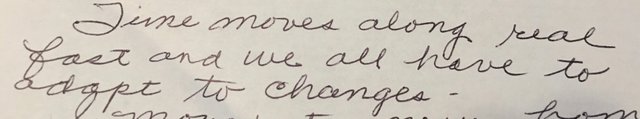 Time moves along real
fast and we all have to
adapt to changes -